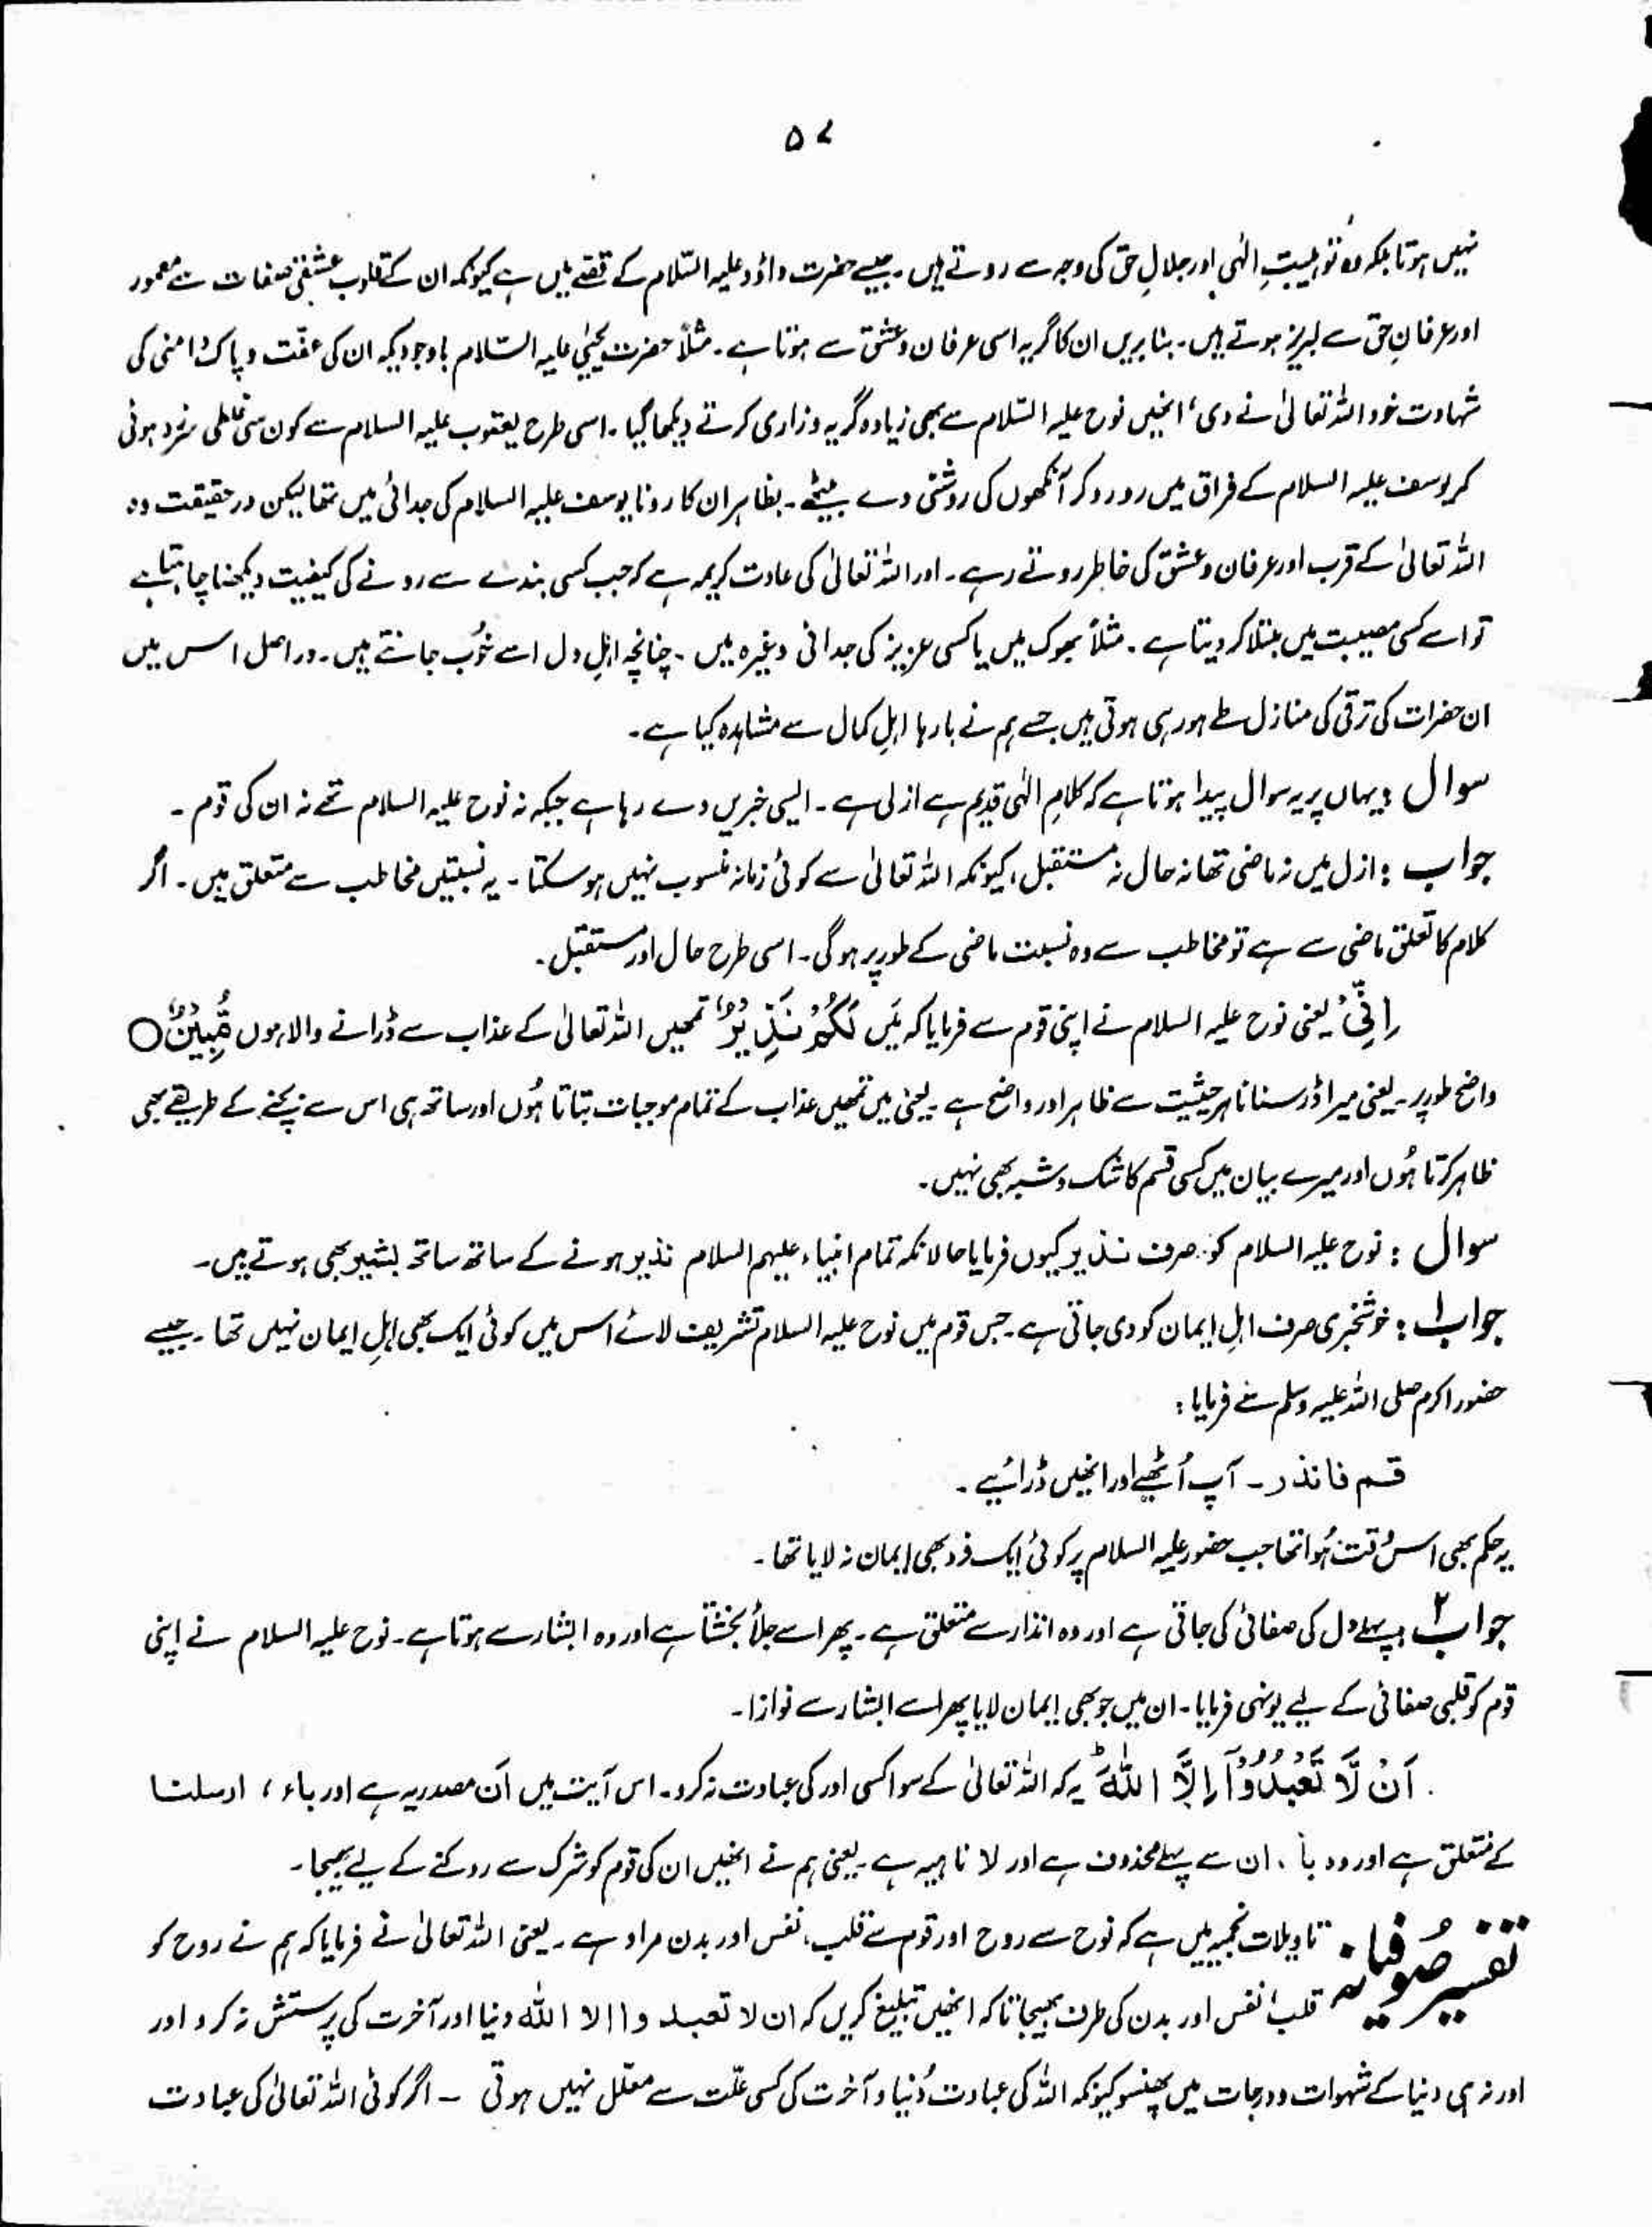 ۵۷
نہیں ہوتا بلکہ وہ تو ہیبتِ الٰہی اور جلالِ حق کی وجہ سے روتے ہیں۔ جیسے حضرت داؤد علیہ السّلام کے قصّے میں ہے کیونکہ ان کے قلوب عشقِ صفات سے معمور
اور عرفانِ حق سے لبریز ہوتے ہیں۔ بنا بریں ان کا گریہ اسی عرفان و عشق سے ہوتا ہے۔ مثلاً حضرت یحییٰ علیہ السّلام باوجودیکہ ان کی عفّت و پاک دامنی کی
شہادت خود اللہ تعالیٰ نے دی، انھیں نوح علیہ السّلام سے بھی زیادہ گریہ و زاری کرتے دیکھا گیا۔ اسی طرح یعقوب علیہ السلام سے کون سی غلطی سرزد ہوئی
کہ یوسف علیہ السلام کے فراق میں رو رو کر آنکھوں کی روشنی دے بیٹھے۔ بظاہر ان کا رونا یوسف علیہ السلام کی جدائی میں تھا لیکن درحقیقت وہ
اللہ تعالیٰ کے قرب اور عرفان و عشق کی خاطر روتے رہے۔ اور اللہ تعالیٰ کی عادت کریمہ ہے کہ جب کسی بندے سے رونے کی کیفیت دیکھنا چاہتا ہے
تو اسے کسی مصیبت میں مبتلا کر دیتا ہے۔ مثلاً بھوک میں یا کسی عزیز کی جدائی وغیرہ میں۔ چنانچہ اہلِ دل اسے خُوب جانتے ہیں۔ دراصل اس میں
ان حضرات کی ترقی کی منازل طے ہو رہی ہوتی ہیں جسے ہم نے بارہا اہلِ کمال سے مشاہدہ کیا ہے۔
سوال : یہاں پر یہ سوال پیدا ہوتا ہے کہ کلامِ الٰہی قدیم ہے ازلی ہے۔ ایسی خبریں دے رہا ہے جبکہ نہ نوح علیہ السلام تھے نہ ان کی قوم۔
جواب : ازل میں نہ ماضی تھا نہ حال نہ مستقبل، کیونکہ اللہ تعالیٰ سے کوئی زمانہ منسوب نہیں ہو سکتا۔ یہ نسبتیں مخاطب سے متعلق ہیں۔ اگر
کلام کا تعلق ماضی سے ہے تو مخاطب سے وہ نسبت ماضی کے طور پر ہوگی۔ اسی طرح حال اور مستقبل۔
اِنِّیْ یعنی نوح علیہ السلام نے اپنی قوم سے فرمایا کہ میَں لَكُمْ نَذِيْرٌ تمھیں اللہ تعالیٰ کے عذاب سے ڈرانے والا ہوں مُّبِيْنٌ ○
واضح طور پر۔ یعنی میرا ڈر سنانا ہر حیثیت سے ظاہر اور واضح ہے۔ یعنی میں تمھیں عذاب کے تمام موجبات بتاتا ہُوں اور ساتھ ہی اس سے بچنے کے طریقے بھی
ظاہر کرتا ہُوں اور میرے بیان میں کسی قسم کا شک و شبہ بھی نہیں۔
سوال : نوح علیہ السلام کو صرف نذیر کیوں فرمایا حالانکہ تمام انبیاء علیہم السلام نذیر ہونے کے ساتھ ساتھ بشیر بھی ہوتے ہیں۔
جواب ۱ : خوشخبری صرف اہلِ ایمان کو دی جاتی ہے۔ جس قوم میں نوح علیہ السلام تشریف لائے اس میں کوئی ایک بھی اہلِ ایمان نہیں تھا۔ جیسے
حضور اکرم صلی اللہ علیہ وسلم سے فرمایا :
قم فانذر ۔ آپ اُٹھیے اور انھیں ڈرائیے۔
یہ حکم بھی اس وقت ہُوا تھا جب حضور علیہ السلام پر کوئی ایک فرد بھی ایمان نہ لایا تھا۔
جواب ۲ : پہلے دل کی صفائی کی جاتی ہے اور وہ انذار سے متعلق ہے۔ پھر اسے جلأ بخشتا ہے اور وہ ابشار سے ہوتا ہے۔ نوح علیہ السلام نے اپنی
قوم کو قلبی صفائی کے لیے یونہی فرمایا۔ ان میں جو بھی ایمان لایا پھر اسے ابشار سے نوازا۔
اَنْ لَّا تَعْبُدُوْٓا اِلَّا اللّٰهَ ؕ یہ کہ اللہ تعالیٰ کے سوا کسی اور کی عبادت نہ کرو۔ اس آیت میں اَن مصدریہ ہے اور باء ، ارسلنا
کے متعلق ہے اور وہ بأ ، ان سے پہلے محذوف ہے اور لا ناہیہ ہے۔ یعنی ہم نے انھیں ان کی قوم کو شرک سے روکنے کے لیے بھیجا۔
تفسیر صُوفیانہ تاویلات نجمیہ میں ہے کہ نوح سے روح اور قوم سے قلب، نفس اور بدن مراد ہے۔ یعنی اللہ تعالیٰ نے فرمایا کہ ہم نے روح کو
قلب، نفس اور بدن کی طرف بھیجا تاکہ انھیں تبلیغ کریں کہ ان لا تعبدوا الا اللہ دنیا اور آخرت کی پرستش نہ کرو اور
اور نہ ہی دنیا کے شہوات و درجات میں پھنسو کیونکہ اللہ کی عبادت دُنیا و آخرت کی کسی علّت سے معلّل نہیں ہوتی ۔ اگر کوئی اللہ تعالیٰ کی عبادت